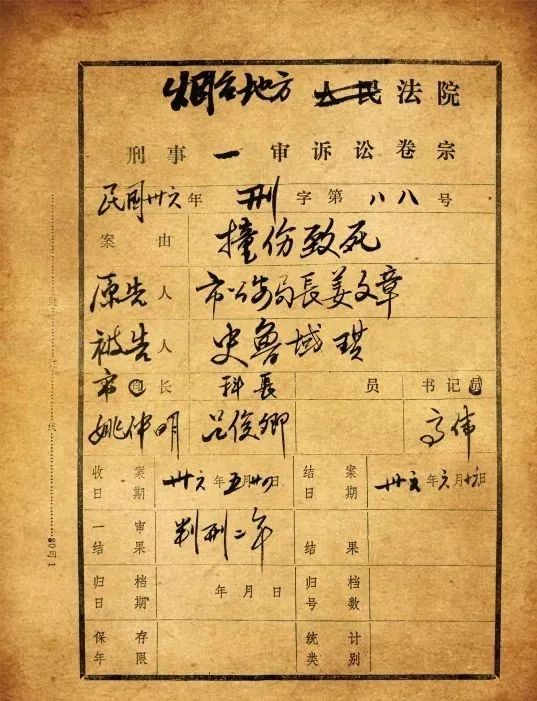 烟台地方人民法院
刑事一审诉讼卷宗
民国卅六年刑字第八八号
案由 撞伤致死
原告人 市公安局長姜文章
被告人 史鲁域琪
市長 科長 员 书记员
姚仲明 吕俊卿 高伟
收案日期 卅六年五月廿四日 结案日期 卅六年六月 日
一审结果 判刑二年 结果
归档日期 年月日 归档号数
保存年限 统计类别
装订线